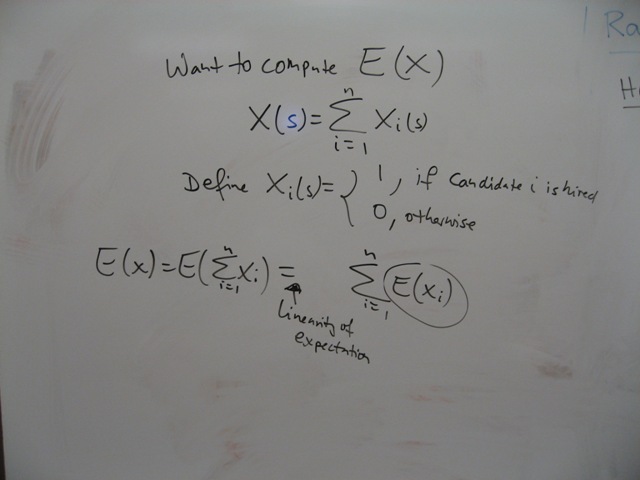 Want to compute E(X)
X(s) = ∑_{i=1}^{n} X_i(s)
Define X_i(s) = { 1, if candidate i is hired
0, otherwise
E(x) = E(∑_{i=1}^{n} X_i) = ∑_{i=1}^{n} E(x_i)
linearity of
expectation
Ra
H